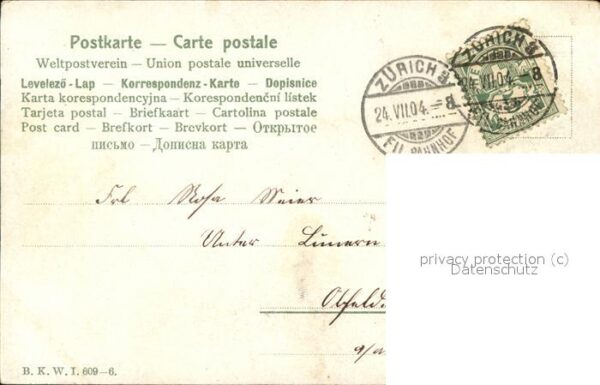 Postkarte — Carte postale
Weltpostverein — Union postale universelle
Levelező-Lap — Korrespondenz-Karte — Dopisnice
Karta korespondencyjna — Korespondenční lístek
Tarjeta postal — Briefkaart — Cartolina postale
Post card — Brefkort — Brevkort — Открытое
письмо — Дописна карта
ZÜRICH
24.VII.04.—8
FIL. BAHNHOF
ZÜRICH
24.VII.04 8
Frl Rosa Meier
Unter Lunern
privacy protection (c)
Datenschutz
B. K. W. I. 609—6.